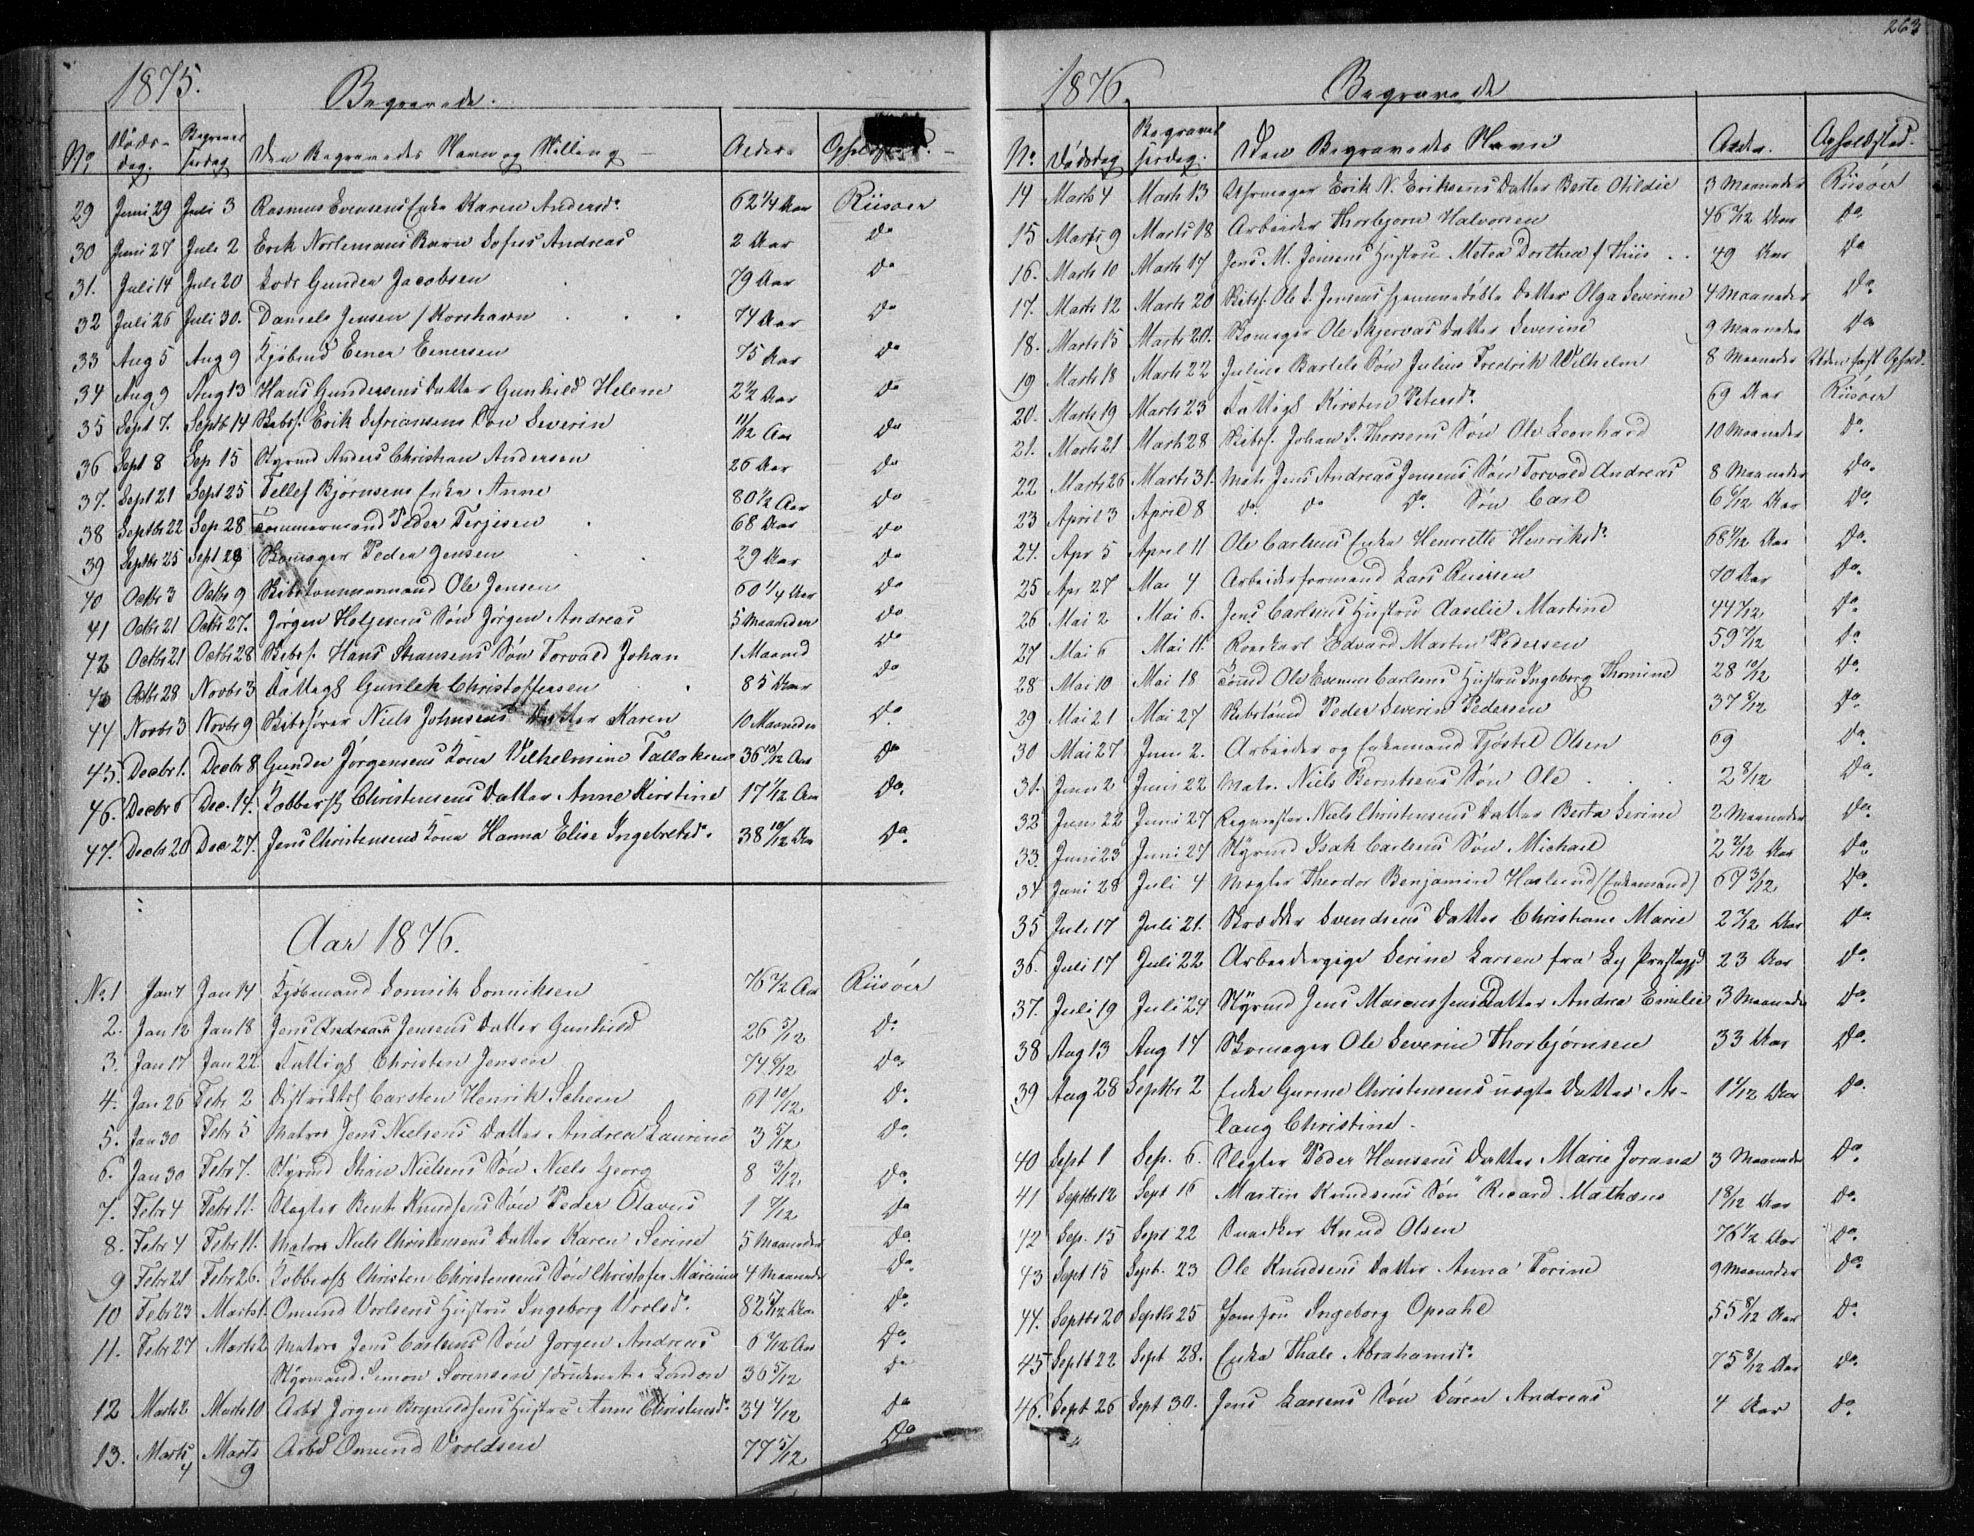 1875.
Begravede.
No
Døds-
dag.
Begravel
sesdag
Den Begravedes Navn og Stilling
Alder.
29 Juni 29 Juli 3 Rasmus Evensens Enke Karen Andersd. 62 1/4 Aar Riisøer
30 Juni 27 Juli 2 Erik Nortemans Barn Sofus Andreas 2 Aar Do
31. Juli 14 Juli 20 Lods Gunder Jacobsen 79 Aar Do
32 Juli 26 Juli 30. Daniels Jensen / Korshavn 74 Aar Do
33 Aug 5 Aug 9 Kjøbmd Eener Eenersen 75 Aar Do
34 Aug 9 Aug 13 Hans Gundersens Datter Gunhild Helene 2 1/2 Aar Do
35 Sept 7. Septb 14 Skibsf. Erik Søn Severin 11/12 Aar Do
36 Sept 8 Sep 15 Styrmd Anders Christian Andersen 26 Aar Do
37. Sept 21 Sept 25 Tellef Bjørnsens Enke Anne 80 1/2 Aar Do
38 Septbr 22 Sep 28 Tømmermand Peder Terjesen 68 Aar Do
39 Septbr 25 Sept 28 Skomager Peder Jensen 29 Aar Do
40 Octbr 3 Octbr 9 Skibstømmermand Ole Jensen 60 1/4 Aar Do
41 Octbr 21 Octbr 27. Jørgen Søn Jørgen Andreas 5 Maaneder Do
42 Octbr 21 Octbr 28 Skibsf. Hans Søn Torvald Johan 1 Maaned Do
43 Octbr 28 Novbr 3 Fattigl Gunlek Christoffersen 85 Aar Do
44 Novbr 3 Novbr 9 Skibsfører Niels Johnsens Datter Karen 10 Maaneder Do
45. Decbr 1. Decbr 8 Gunder Jørgensens Kone Vilhelmine Tallaksen 36 10/12 Aar Do
46. Decbr 6 Dec. 14. Kobbersl. Christensens Datter Anne Kirstine 17 1/12 Aar Do.
47. Decbr 20 Dec 27. Jens Christensens Kone Hanna Elise Ingebretsd. 38 10/12 Aar Do
Aar 1876.
No 1 Jan 7 Jan 14 Kjøbmand Sonnik Sonniksen 76 1/2 Aar Riisøer
2. Jan 12 Jan 18 Jens Andreas Jensens Datter Gunhild 26 5/12 Do
3. Jan 17 Jan 22 Fattigl Christen Jensen 74 Do
4. Jan 26 Febr 2 Carsten Henrik Scheen 61 10/12 Do
5. Jan 30 Febr 5 Matros Jens Nielsens Datter Andrea Laurine 3 5/12 Do
6. Jan 30 Febr 7. Styrmd Nielsens Søn Niels Georg 8 3/12 Do
7. Febr 4 Febr 11. Slagter Bent Knudsens Søn Peder Olavus 1 7/12 Do
8. Febr 4 Febr 11. Matros Niels Christensens Datter Karen Serine 5 Maaneder Do
9 Febr 21 Febr 26. Kobbersl Christen Christensens Søn Christofer Marinius 4 Maaneder Do
10 Febr 23 Marts 1. Omund Vrolsens Hustru Ingeborg Vrolsd. 82 5/12 Aar Do
11. Febr 27 Marts 2 Matros Jens Carlsens Søn Jørgen Andreas 6 Aar Do
Styrmand Simon Sørensen / druknet i London 36 5/12 Do
12 Marts 2 Marts 10 Arbd Jørgen Hustru Anne Christensd. 34 Do
13. Marts 4 Marts 9 Arbd Omund Vroldsen 77 5/12 Do
263
1876.
Begravede
No Dødsdag
Begravel
sesdag.
Den Begravedes Navn
Alder.
Opholdsted.
14 Marts 4 Marts 13 Uhrmager Erik N. Eriksens Datter Berte Otildie 3 Maaneder Riisøer
15 Marts 9 Marts 18 Arbeider Thorbjørn Halvorsen 46 Aar Do.
16. Marts 10 Marts 17 Jens M. Jensens Hustru Metea Dorthea f Thiis 49 Aar Do
17. Marts 12 Marts 20 Skibsf. Ole S. Jensens hjemmedøbte Datter Olga Severine 4 Maaneder Do
18. Marts 15 Marts 20. Skomager Ole Datter Severine 9 Maaneder Do
19 Marts 18 Marts 22 Julius Bartels Søn Julius Fredrik Wilhelm 8 Maaneder Uden fast Ophold.
20. Marts 19 Marts 23 Fattigl Kirsten Petersd. 69 Aar Riisøer
21. Marts 21 Marts 28 Skibsf. Johan P. Thorsens Søn Ole Leonhard 10 Maaneder Do
22 Marts 26 Marts 31. Matr Jens Andreas Jensens Søn Torvald Andreas 8 Maaneder Do.
23 April 3 April 8 do do Do Søn Carl 6 Aar Do.
24. Apr 5 April 11 Ole Carlsens Enke Henriette Henriksd. 68 Aar Do.
25 Apr 27 Mai 4 Arbeidsformand Lars 70 Aar Do.
26 Mai 2 Mai 6. Jens Carlsens Hustru Aaselie Martine 44 7/12 Do.
27 Mai 6 Mai 11. Edvard Martin Pedersen 59 7/12 Do
28 Mai 10 Mai 18 Ole Carlsens Hustru Ingeborg Thomine 28 10/12 Do.
29 Mai 21 Mai 27 Peder Severin Pedersen 37 Do.
30 Mai 27 Juni 2. Arbeider og Enkemand Tjøstel Olsen 69 Do.
31. Juni 2 Juni 22 Matr. Niels Berntsens Søn Ole 2 8/12 Do.
32 Juni 22 Juni 27 Niels Christensens Datter Berta Serine 2 Maaneder Do.
33. Juni 23 Juni 27 Styrmd Isak Carlsens Søn Michael 2 Aar Do.
34 Juni 28 Juli 4 Mægler Theodor Benjamin Haslund (Enkemand) 67 3/12 Do.
35 Juli 17 Juli 21. Skrædder Svendsens Datter Christiane Marie 2 7/12 Aar Do.
36. Juli 17 Juli 22 Arbeiderpige Serine Larsen fra 23 Aar Do.
37. Juli 19 Juli 24 Styrmd Jens Datter Andrea Emilie 3 Maaneder Do.
38 Aug 13 Aug 14 Skomager Ole Severin Thorbjørnsen 33 Aar Do.
39 Aug 28 Septbr 2 Enke Gurine Christensens uægte Datter As-
laug Christine. 1 Aar Do.
40 Sept 1 Sep. 6. Slagter Peder Hansens Datter Marie Jorana 3 Maaneder Do.
41 Septbr 12 Sept 16 Martin Knudsens Søn Ricard Mathæus 1 8/12 Aar Do.
42 Sep. 15 Sept 22 Snedker Knud Olsen 76 1/2 Aar Do.
43 Sept 15 Sept. 23 Ole Knudsens Datter Anna Torine 9 Maaneder Do.
44. Septbr 20 Septbr 25 Jomfru Ingeborg Opsahl 55 8/12 Aar Do
45 Septb 22 Sept 28. Enke Thale Abrahamsd. 75 8/12 Aar Do.
46. Sept 26 Sept 30. Jens Larsens Søn Søren Andreas 4 Aar Do.